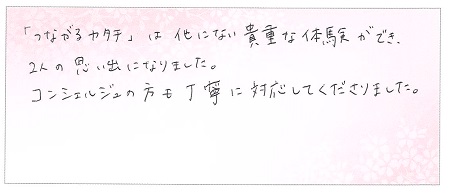 「つながるカタチ」は他にない貴重な体験ができ、
2人の思い出になりました。
コンシェルジュの方も丁寧に対応してくださりました。